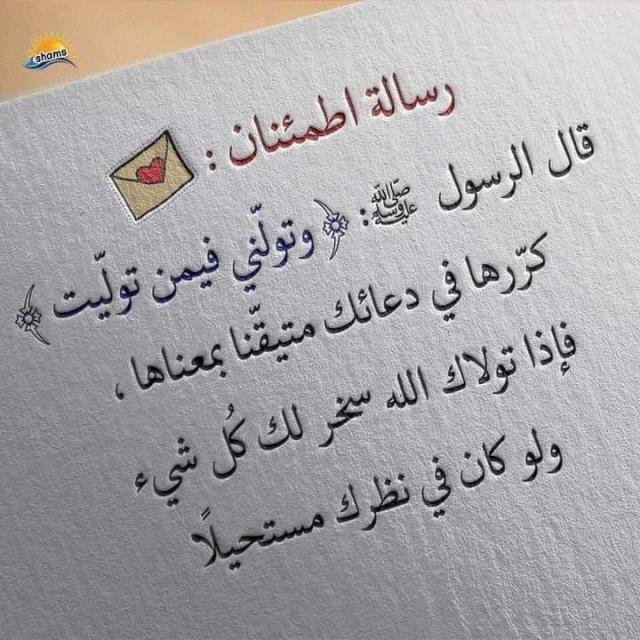 shams
رسالة اطمئنان :
قال الرسول ﷺ: ﴿ وتولّني فيمن تولّيت ﴾
كرّرها في دعائك متيقّنا بمعناها ،
فإذا تولاك الله سخر لك كُل شيء
ولو كان في نظرك مستحيلًا